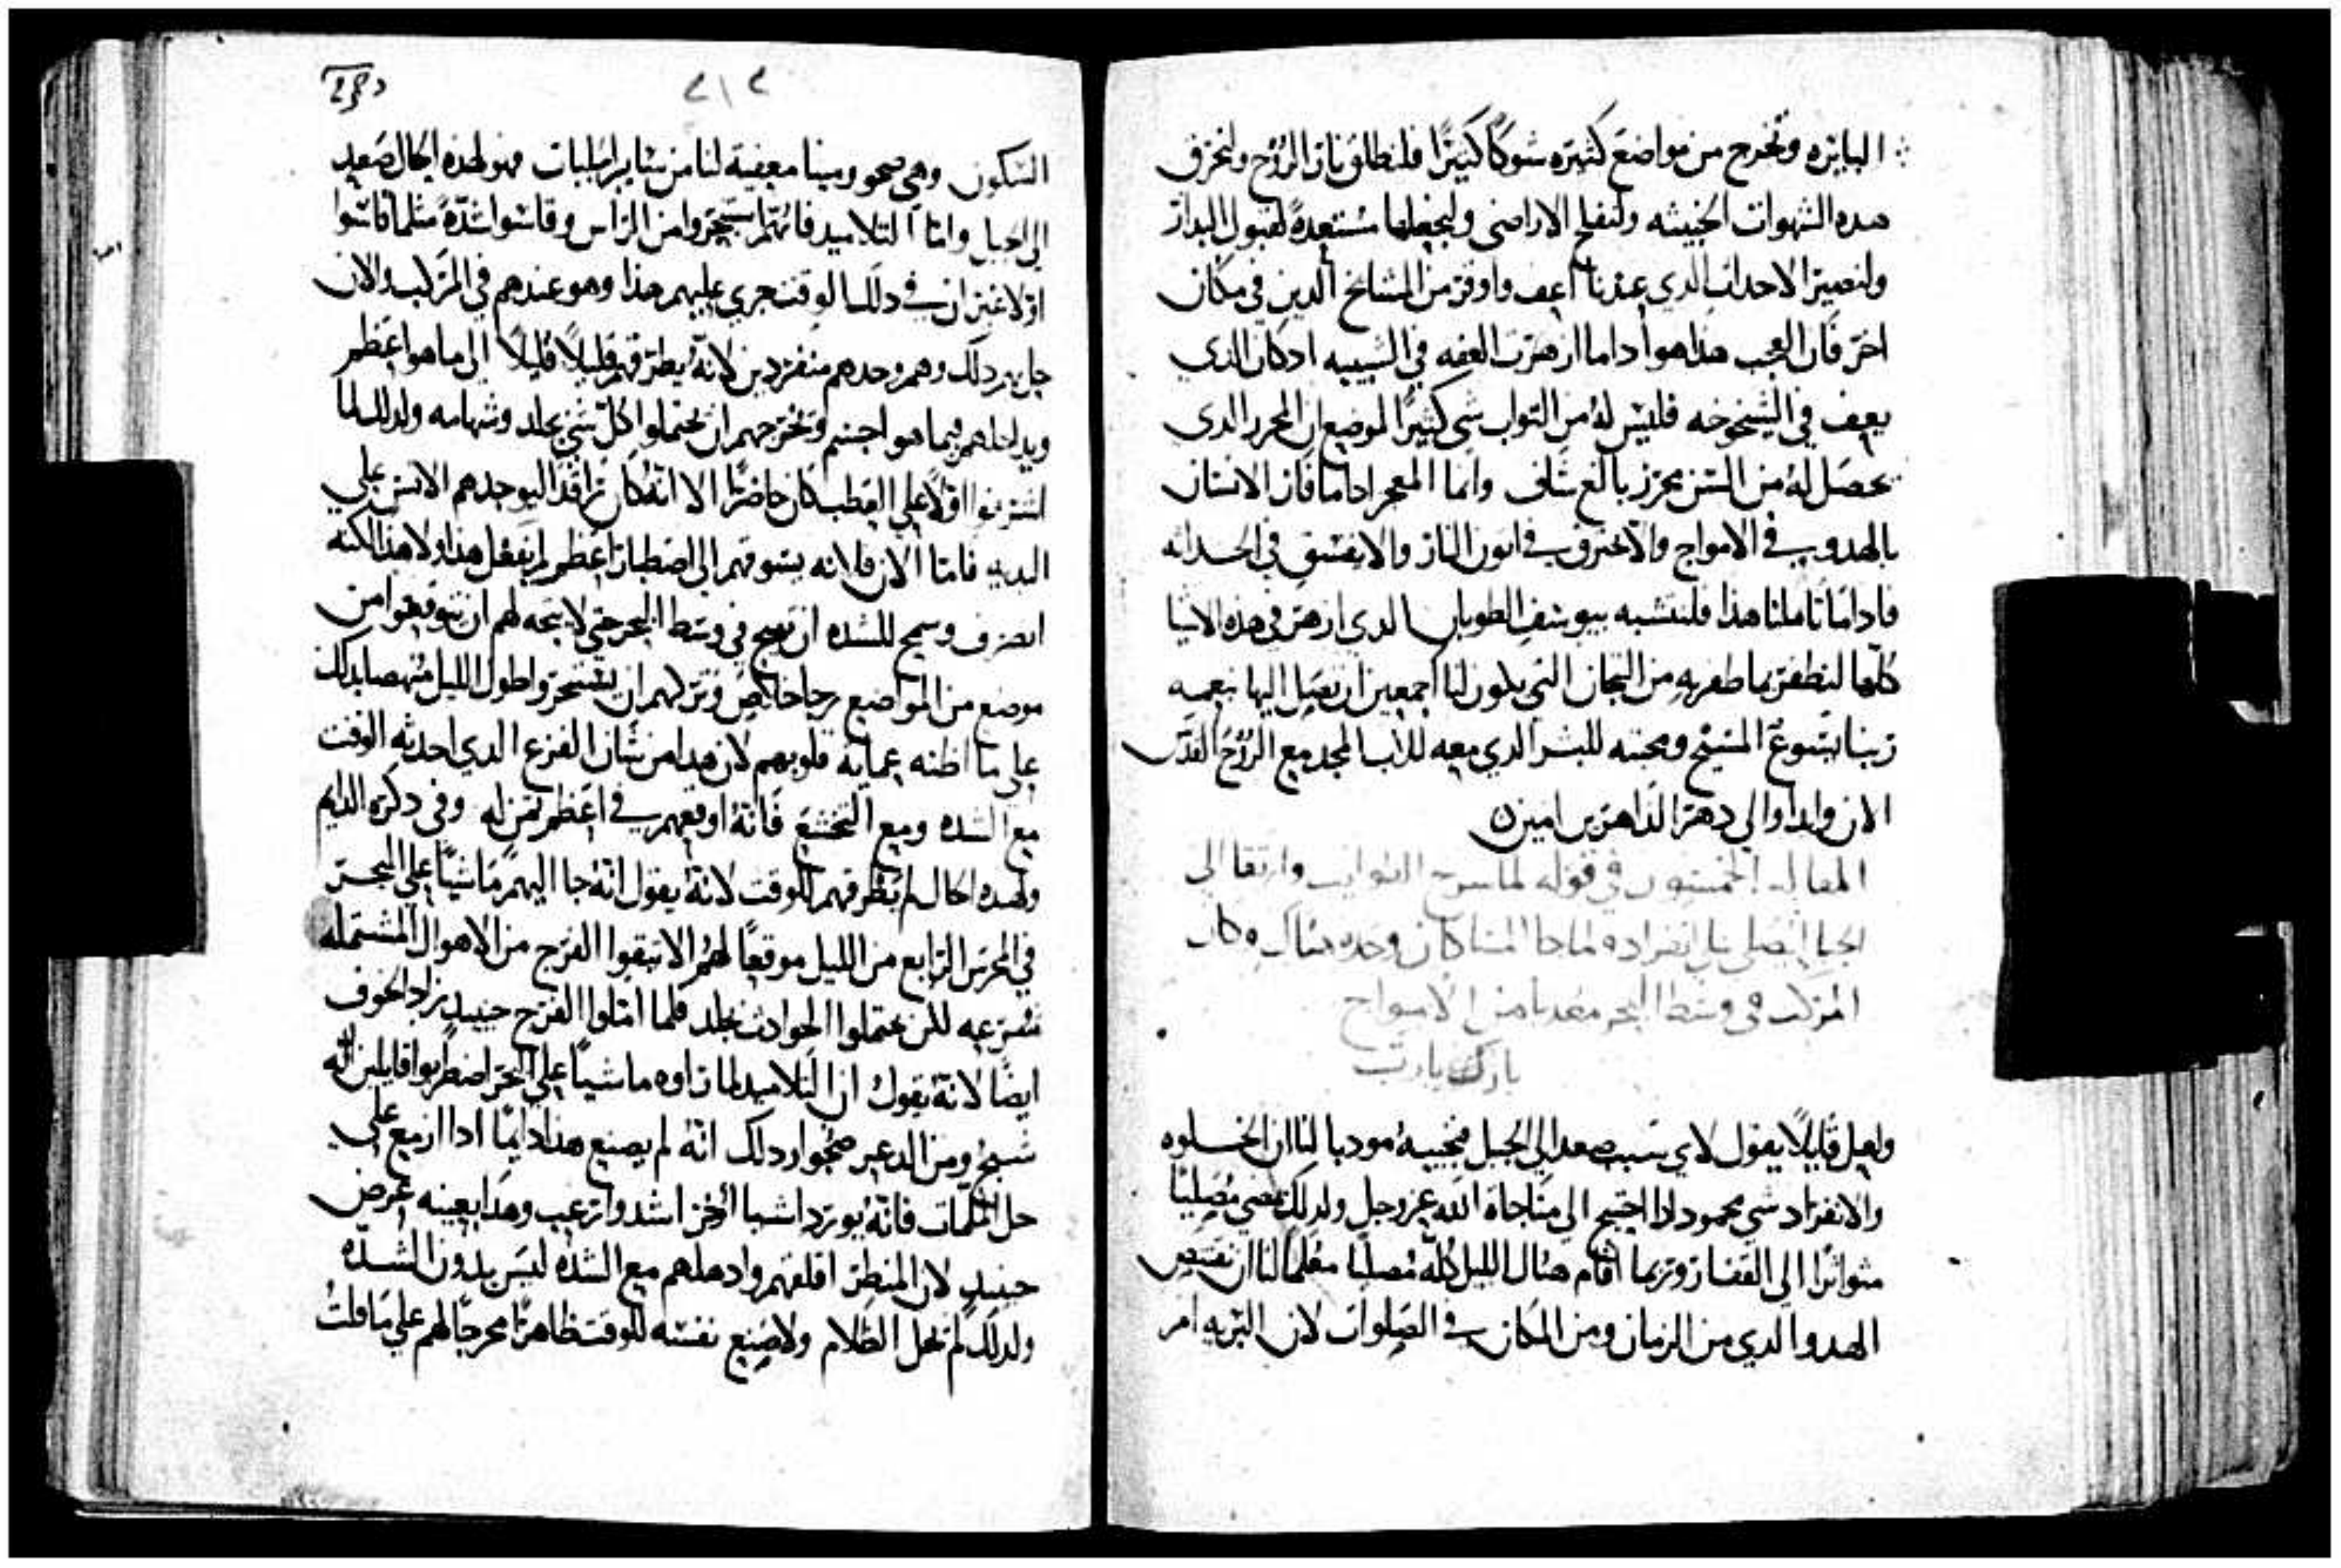 البايره وتخرج من مواضع كثيره شوكًا كبيرًا فلنطلق نار الروح ولنحرق
هده الشهوات الخبيثه ولنفلح الاراضى ولنجعلها مستعدةً لقبول البدار
ولنصير الاحداث الدي عندنا اعف واوقر من المشايخ الدين في مكان
اخر فان العجب هذا هو اداما ازهرت العفه في الشبيبه ادكان الدي
يعف في الشيخوخه فليس له من التواب شي كثيرًا لموضع ان المحرز الدى
يحصل له من السن محرز بالغ شاف وانما المعجز اداما فاز الانسان
بالهدو في الامواج والاحترق في اتون النار والايفسق في الحداثه
فاداما تاملنا هذا فلنتشبه بيوسف الطوبان الدي ازهر في هذه الاشيا
كلها لنظفر بما ظفر به من التيجان التي يكون لنا اجمعين ان نصل اليها بنعمه
ربنا يسوع المسيح ومحبته للبشر الدي معه للاب المجد مع الروح القدس
الان وابدا والي دهر الداهرين امين
المقاله الخمسون في قوله لما سرح وارتقا الى
الجبل ليصلي انفراده لما جا المسا كان وحده هناك وكان
المركب في وسط البحر معدبا من الامواج
بارك يارب
ولعل قايلًا يقول لاي سبب صعد الي الجبل فنجيبه مودبا لنا ان الخلوه
والانفراد شي محمود ادا احتيج الى مناجاة الله عز وجل ولدلك مضي مصليًا
متواترًا الي القفار وربما اقام هناك الليل كله مصليًا معلمًا لنا ان نقتنص
الهدو الدي من الزمان ومن المكان في الصلوات لان البريه ام
٢١٢
السكون وهي صحو ومينا معفية لنا من ساير الجلبات فهو لهذه الحال صعد
الى الجبل واما التلاميد فانهم استحروا من الراس وقاسوا شدةً مثلما قاسوا
اولا غير ان في دلك الوقت جري عليهم هذا وهو عندهم في المركب والان
حل بهم دلك وهم وحدهم منفردين لانه يطرقهم قليلًا قليلًا الى ما هو اعظم
ويدلهم فيما هو اجسم ويخرجهم ان يحتملوا كل شي بجلد وشهامه ولدلك لما
اشرفوا اولًا على العطب كان حاضرًا الا انه كان راقدا ليوجدهم الانس على
البديه فاما الان فلانه يسوقهم الي اصطبار اعظم لم يفعل هذا ولا هذا لكنه
انصرف وسمح للشده ان تهيج في وسط البحر حتي لا يتجه لهم ان يتوقعوا من
موضع من المواضع رجا خلاص وتركهم ان يستحروا طول الليل منهضا بدلك
على ما اظنه عماية قلوبهم لان هدا من شان الفزع الدي احدثه الوقت
مع الشده ومع التخشع فانه اوقعهم في اعظم تمن له وفي دكره الدايم
ولهده الحال لم يظرفهم للوقت لانه يقول انه جا اليهم ماشيًا على البحر
في الحرس الرابع من الليل موقعًا لهم الا يتبغوا الفرج من الاهوال المشتمله
بسرعه لكن يحتملوا الحوادت بجلد فلما املوا الفرج حينيد زاد الخوف
ايضا لانه يقول ان التلاميد لما راوه ماشيًا على البحر اضطربوا قايلين انه
شبح ومن الدعر ضجوا ردلك انه لم يصنع هذا دايمًا ادا ازمع على
حل الملمات فانه يورد اشيا اخر اشد وارعب وهدا بعينه عرض
حينيد لان المنظر اقلقهم وادهلهم مع الشده ليس بدون الشده
ولدلك لم يحل الظلام ولا صنع نفسه للوقت ظاهرًا محرجًا لهم علي ما قلت